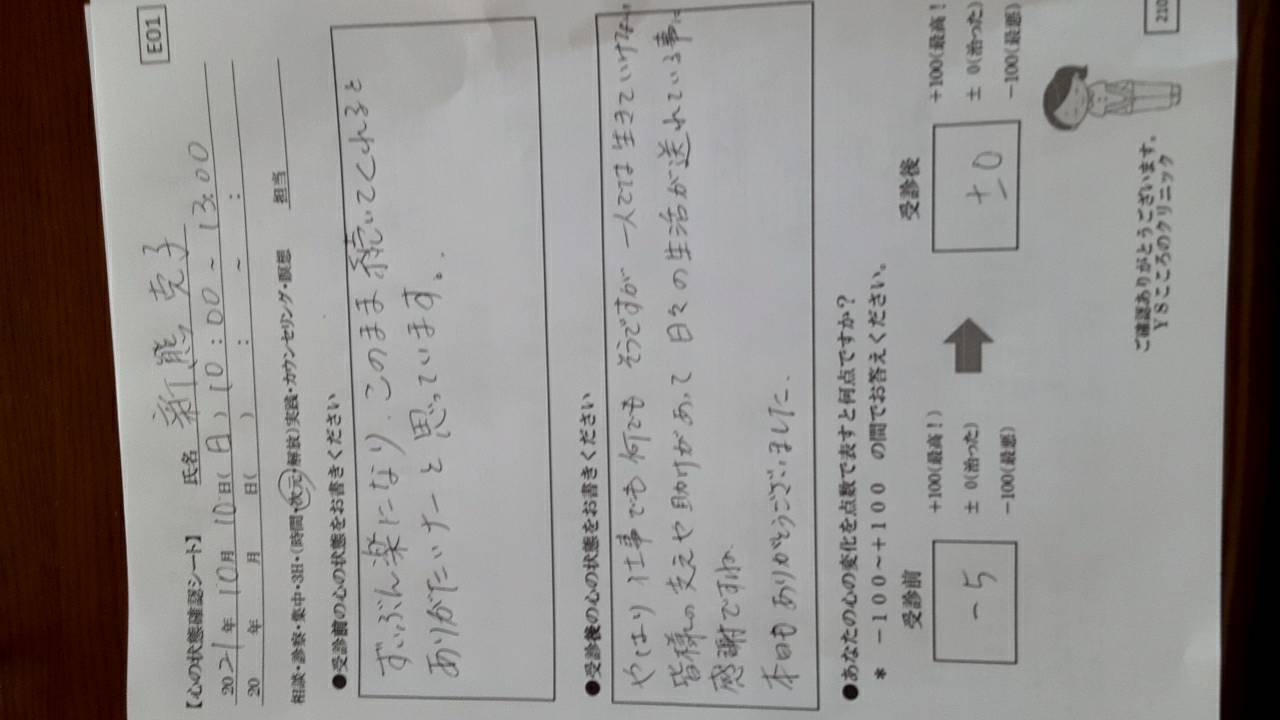 E01
【心の状態確認シート】 氏名 新熊 克子
2021年 10月 10日( 日 ) 10:00 ~ 13:00
20 年 月 日( ) : ~ :
相談・診察・集中・3日・(時間・次元・解放)実践・カウンセリング・瞑想 担当
●受診前の心の状態をお書きください
ずいぶん楽になり、このまま続いてくれると
ありがたいナーと思っています。
●受診後の心の状態をお書きください
やはり仕事でも何でもそうですが 一人では生きていけない
皆様の支えや助けがあって 日々の生活が送れている事に
感謝ですね
本日もありがとうございました。
●あなたの心の変化を点数で表すと何点ですか?
* −100~+100 の間でお答えください。
受診前 受診後
−5
+100(最高!)
± 0(治った)
−100(最悪)
±0
+100(最高!
± 0(治った)
−100(最悪)
ご確認ありがとうございます。
YSこころのクリニック
210